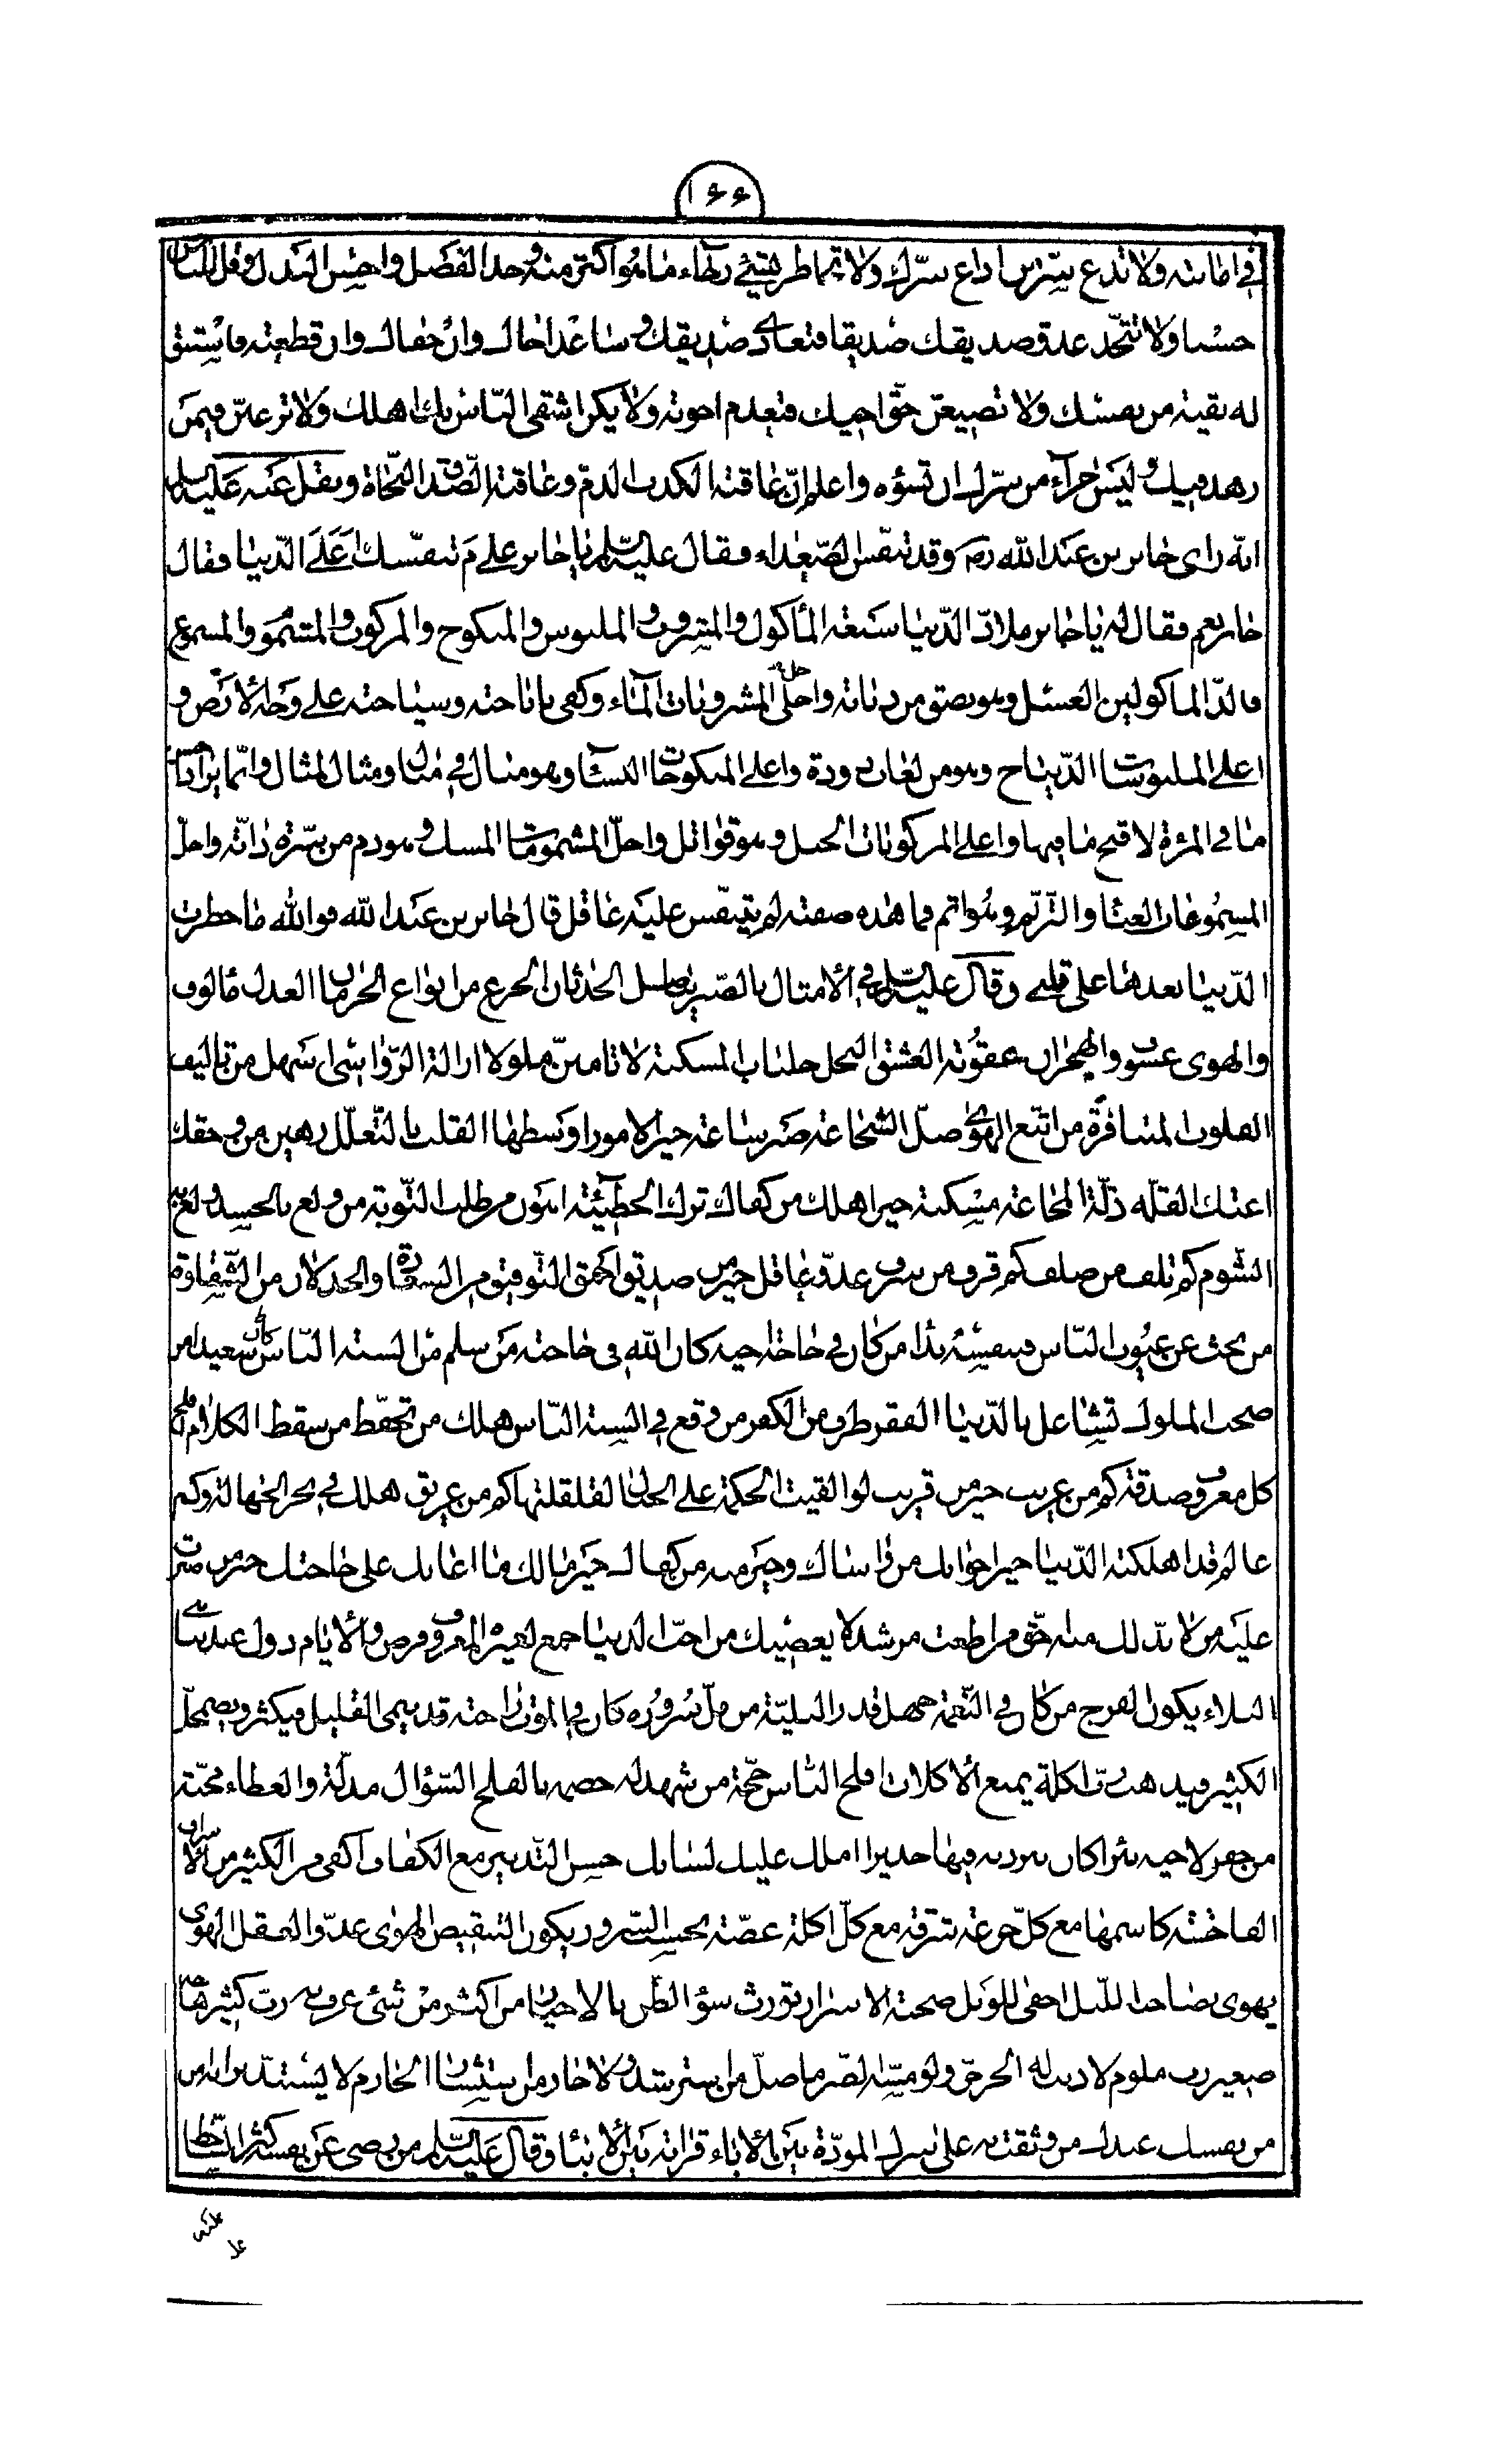 ١٦٦
في امانته ولا تذع سر من اذاع سرك ولا تخاطر بشيء رجاء ما هو اكثر منه وخذ الفضل واحسن البذل وقل للناس
حسنا ولا تتخذ عدو صديقك صديقا فتعادي صديقك وساعد اخاك وان جفاك وان قطعته فاستبق
له بقية من نفسك ولا تضيعن حق اخيك فتعدم اخوته ولا يكن اشقى الناس بك اهلك ولا ترغبن فيمن
زهد فيك وليس جزآء من سرك ان تسؤه واعلم ان عاقبة الكذب الذم وعاقبة الصدق النجاة ونقل عنه عليه السلام
انه راى جابر بن عبد الله رض وقد تنفس الصعداء فقال عليه السلم يا جابر على م تنفسك اعلى الدنيا فقال
جابر نعم فقال له يا جابر ملاذ الدنيا سبعة المأكول والمشروب والملبوس والمنكوح والمركوب والمشموم والمسموع
فالذ الماكولين العسل وهو بصق من ذبابة واحلى المشروبات المآء وكفى باباحته وسياحته على وجه الارض و
اعلى الملبوسات الديباج وهو من لعاب دودة واعلى المنكوحات النسآء وهو مبال في مبال ومثال لمثال وانما يراد احسن
ما في المرئة لاقبح ما فيها واعلى المركوبات الخيل وهو قواتل واجل المشمومات المسك وهو دم من سرة دابة واجل
المسموعات الغناء والترنم وهو اثم فما هذه صفته لم يتنفس عليه عاقل قال جابر بن عبد الله فوالله ما خطرت
الدنيا بعدها على قلبي وقال عليه السلم في الامثال بالصبر يناضل الحدثان الجزع من انواع الحرمان العدل مالوف
والهوى عسوف والهجران عقوبة العشق البخل جلباب المسكنة لا تامنن ملولا ازالة الرواسي اسهل من تاليف
القلوب المتنافرة من اتبع الهوى ضل الشجاعة صبر ساعة خير الامور اوسطها القلب بالتعلل رهين من ومقك
اعتبك القلة ذلة المجاعة مسكنة خير اهلك من كفاك ترك الخطيئة اهون من طلب التوبة من ولع بالحسد ولع به
الشوم كم تلف من صلف كم قرف من سرف عدو عاقل خير من صديق احمق التوفيق من السعادة والخذلان من الشقاوة
من بحث عن عيوب الناس فبنفسه بدا من كان في حاجة اخيه كان الله في حاجته من سلم من السنة الناس كان سعيدا من
صحب الملوك تشاغل بالدنيا الفقر طرف من الكفر من وقع في السنة الناس هلك من تحفظ من سقط الكلام افلح
كل معروف صدقة كم من غريب خير من قريب لو القيت الحكمة على الجبال لقلقلتها كم من غريق هلك في بحر الجهالة وكم
عالم قد اهلكته الدنيا خير اخوانك من واساك وخير منه من كفاك خير مالك ما اعانك على حاجتك خير من صبرت
عليه من لا بد لك منه احق من اطعت مرشد لا يعصيك من احب الدنيا جمع لغيره المعروف فرض والايام دول عند تناهي
البلاء يكون الفرج من كان في النعمة جهل قدر البلية من قل سروره كان في الموت راحته قد ينمى القليل فيكثر ويضمحل
الكثير فيذهب رب اكلة يمنع الاكلات افلح الناس حجة من شهد له خصمه بالفلج السؤال مذلة والعطاء محبة
من حفر لاخيه بئرا كان بترديه فيها جديرا املك عليك لسانك حسن التدبير مع الكفاف اكفى من الكثير من الاسراف
الفاحشة كاسمها مع كل جرعة شرقة مع كل اكلة غصة بحسب السرور يكون التنغيص الهوى عدو العقل الهوى
يهوى بصاحبه الليل اخفى للويل صحبة الاشرار تورث سؤ الظن بالاخيار من اكثر من شيء عرف به رب كثير هاجه
صغير رب ملوم لا ذنب له الحر حر ولو مسه الضر ما ضل من استرشد ولا حار من استشار الحازم لا يستبد برايه امن
من نفسك عندك من وثقت به على سرك المودة بين الآباء قرابة بين الابناء وقال عليه السلم من رضى عن نفسه كثر الساخط
عليه